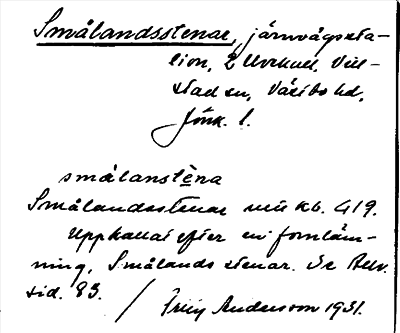 Smålandsstenar, järnvägssta-
tion, 2 Uvekull, Vill-
stad sn, Västbo hd,
Jönk. l.
smålanstèna
Smålandsstenar mik kb. 419.
Uppkallat efter en fornläm-
ning, Smålands stenar. Se Bew.
sid. 83. / Frity Anderson 1931.